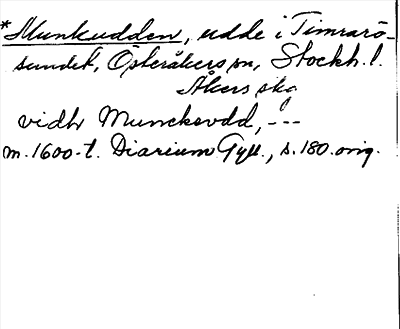 *Munkudden, udde i Timrarö-
sundet, Österåkers sn, Stockh. l.
Åkers skg
vidh Munckovdd, ---
m. 1600-t. Diarium Gyll., s. 180. orig.